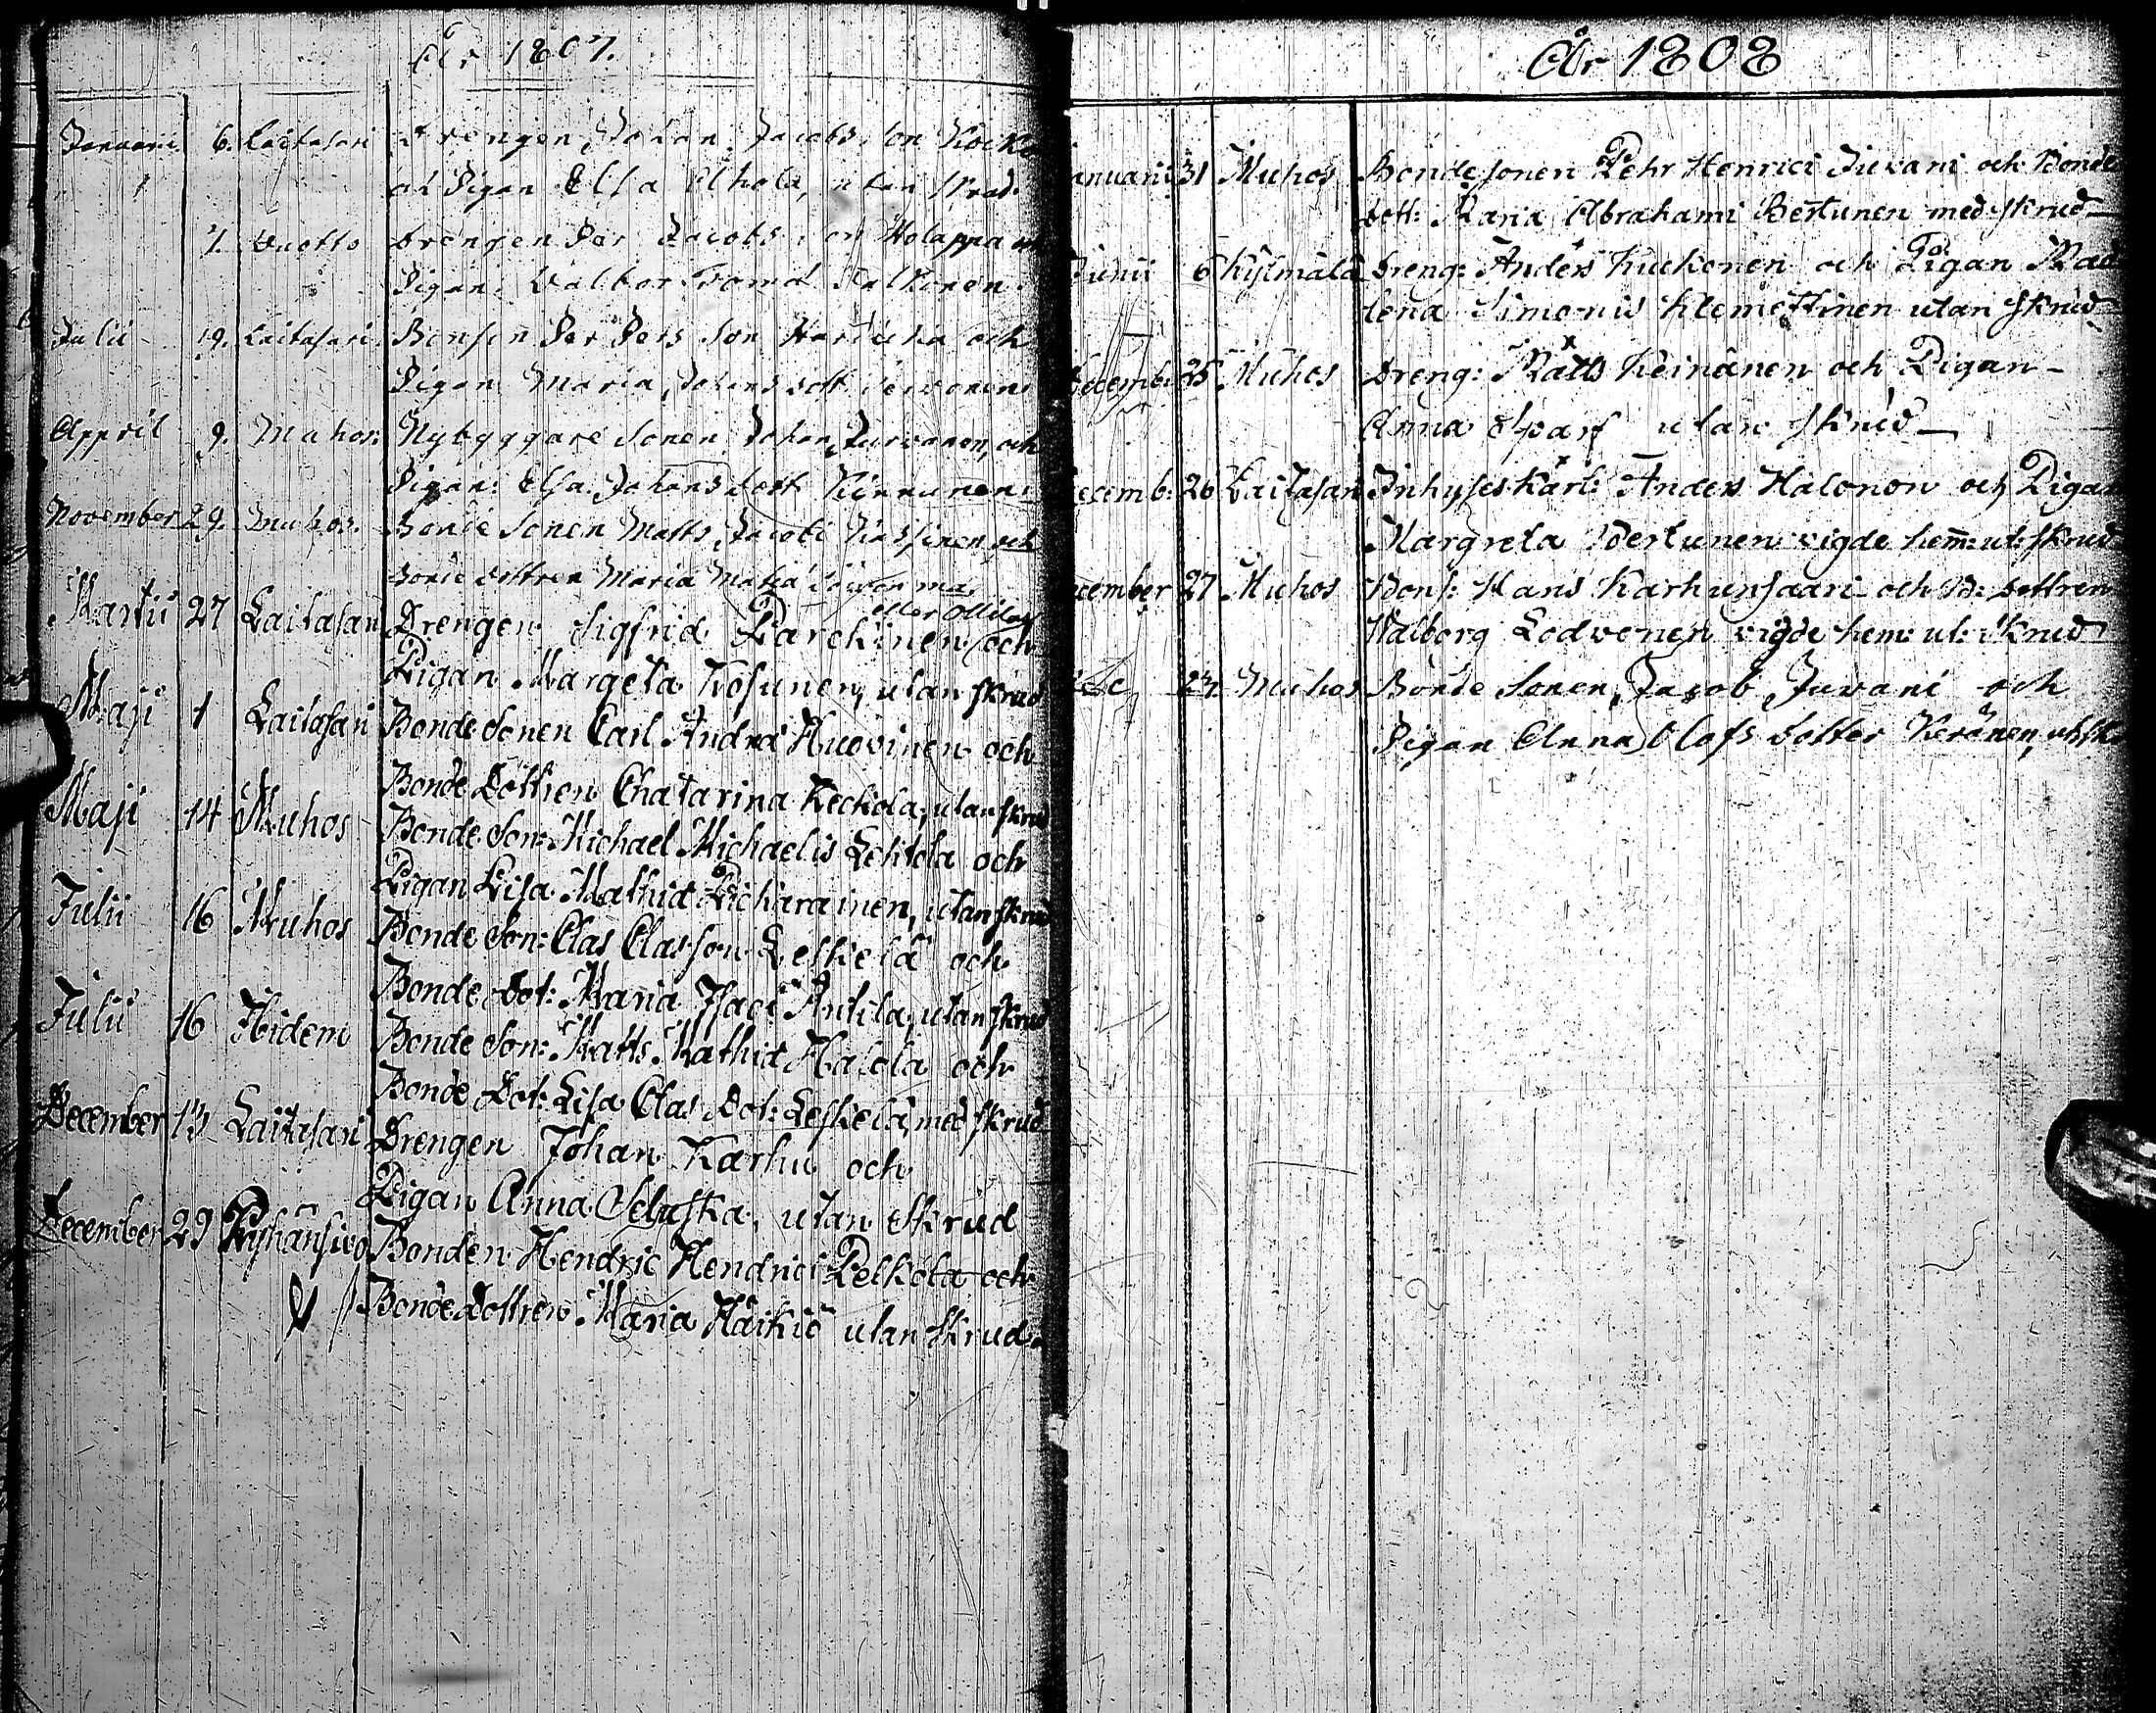 År 1807.
Januari 6. Laitasari Drengen Johan Jacobs son
och Pigan Elsa Alhola, utan skrud
7. Vuotto Drengen Per Jacobs son Holappa
Pigan Valbor
Julii 19. Laitasari Bonsen Per Pers son och
Pigan Maria Johans dott
Appril 9. Muhos: Nybyggare Sonen Johan Jurvanen, och
Pigan: Elsa Johans dott Kinnunen
November 29. Muhos. Bonde Sonen Matts Jacobi och
Bonde dottren Maria
eller Ollila
Martii 27 Laitasari Drengen Sigfrid Parckinen och
Pigan Margeta utan skrud
Maji 1 Laitasari Bonde Sonen Carl Andræ Huovinen och
Bonde Dottren Chatarina Keckola, utan skrud
Maji 14 Muhos Bonde Son: Michael Michaelis Lehtola och
Pigan Lisa Mathiæ utan skrud
Julii 16 Muhos Bonde Son: Clas Clas son Leskelä och
Bonde Dot: Maria Isaci Antila, utan skrud
Julii 16 Ibidem Bonde Son: Matts Mathiæ Halola och
Bonde Dot: Lisa Clas Dot: Leskelä, med skrud
December 13 Laitasari Drengen Johan Karhu och
Pigan Anna utan Skrud
December 29 Bonden Hendric Hendrici Pelkola och
Bonde Dottren Maria Häikiö utan skrud.
År 1808
anuarii 31 Muhos Bonde sonen Pehr Henrici Juvani och Bonde
dott: Maria Abrahami Bertunen med skrud
Junii 6 Kylmälä Dreng: Anders Kuckonen och Pigan Mad
lena Simonis Klemettinen utan skrud
Decemb: 25 Muhos Dreng: Matts Keinänen och Pigan
Anna Sparf utan skrud
ecemb: 26 Laitasari Inhyses Karl: Anders Halonon och Pigan
Margreta Bertunen vigde hem: ut: skrud
cember 27 Muhos Bons: Hans Karhunsaari och B: dottren
Walborg Lodvonen vigde hem: ut: skrud
27. Muhos Bonde Sonen, Jacob Juvani och
Pigan Anna Olofs dotter Keränen,